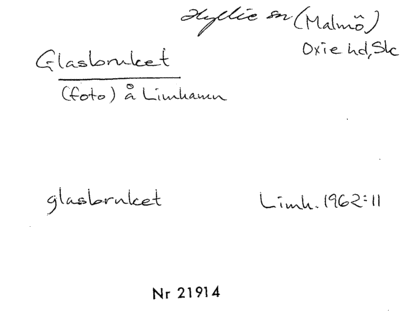 Hyllie sn (Malmö)
Oxie hd, Sk
Glasbruket
(foto) å Limhamn
glasbruket Limh. 1962:11
Nr 21914